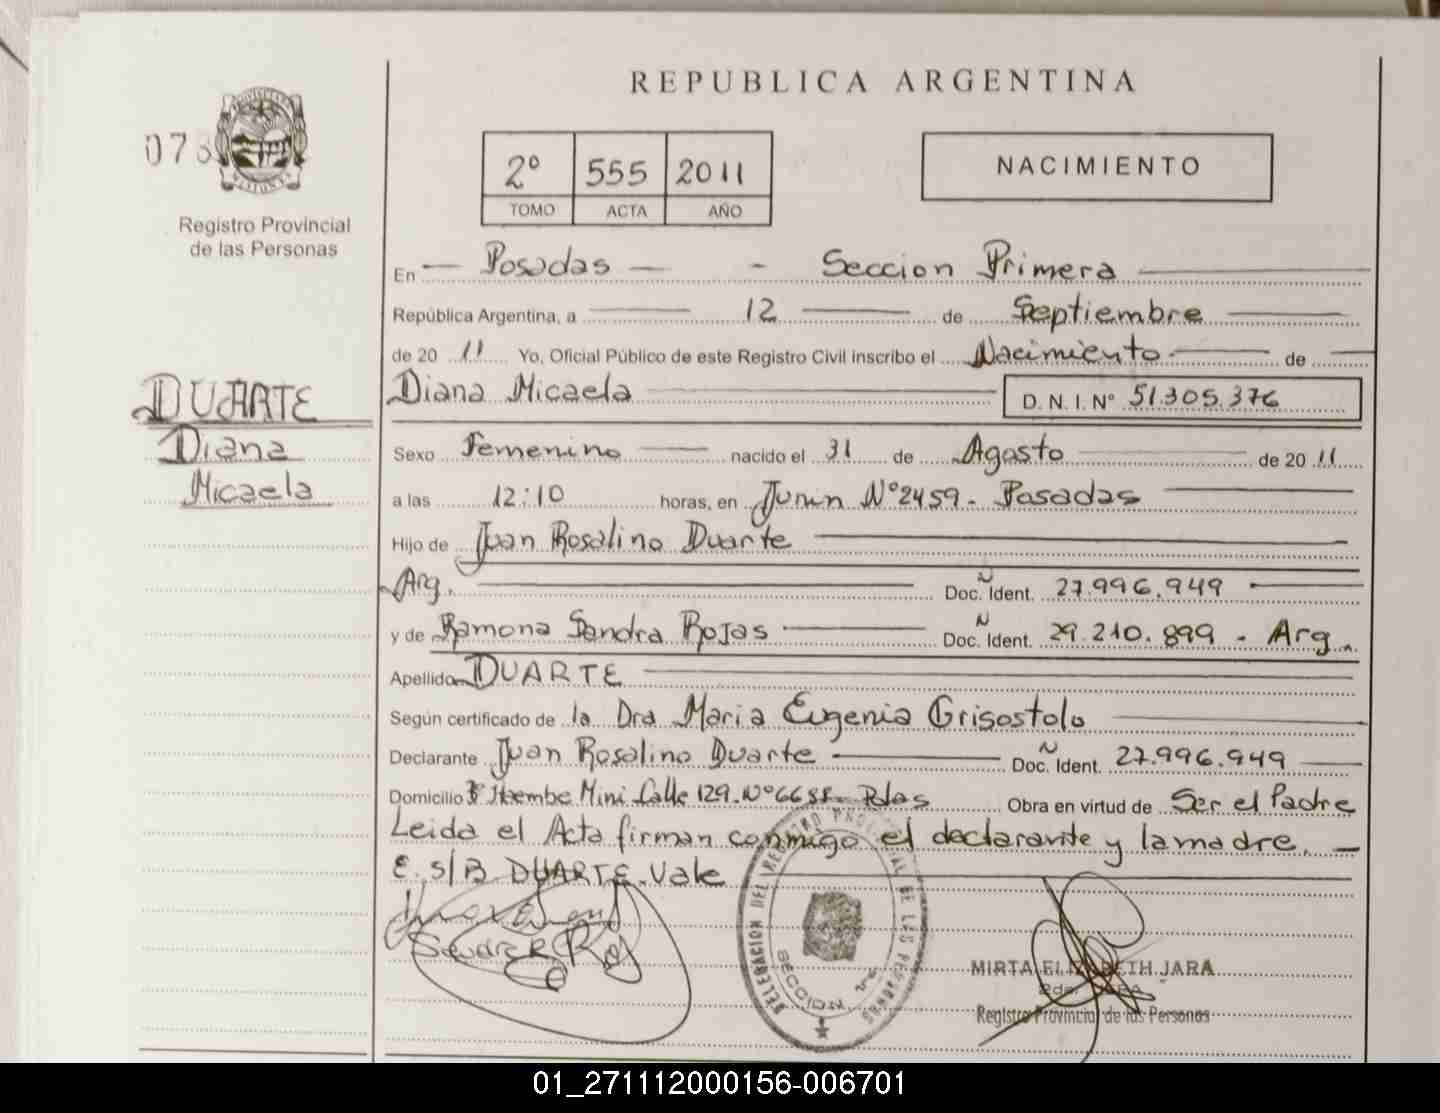 REPUBLICA ARGENTINA
073
2º 555 2011
TOMO ACTA AÑO
NACIMIENTO
Registro Provincial
de las Personas
En Posadas - Seccion Primera
República Argentina, a 12 de Septiembre
de 20 11 Yo, Oficial Público de este Registro Civil inscribo el Nacimiento de
Diana Micaela D. N. I. Nº 51.305.376
DUARTE
Diana
Micaela
Sexo Femenino nacido el 31 de Agosto de 20 11
a las 12:10 horas, en Junin Nº 2459 - Posadas
Hijo de Juan Rosalino Duarte
Arg. Doc. Ident. 27.996.949
y de Ramona Sandra Rojas Doc. Ident. 29.210.899 - Arg.
Apellido DUARTE
Según certificado de la Dra Maria Eugenia Grisostolo
Declarante Juan Rosalino Duarte Doc. Ident. 27.996.949
Domicilio Itaembe Mini Calle 129. Nº Pdas Obra en virtud de Ser el Padre
Leida el Acta firman conmigo el declarante y la madre.
E. S/B DUARTE. Vale
DELEGACION DEL REGISTRO PROVINCIAL DE LAS PERSONAS
SECCION 1ª
MIRTA ELIZABETH JARA
Registro Provincial de las Personas
01_271112000156-006701